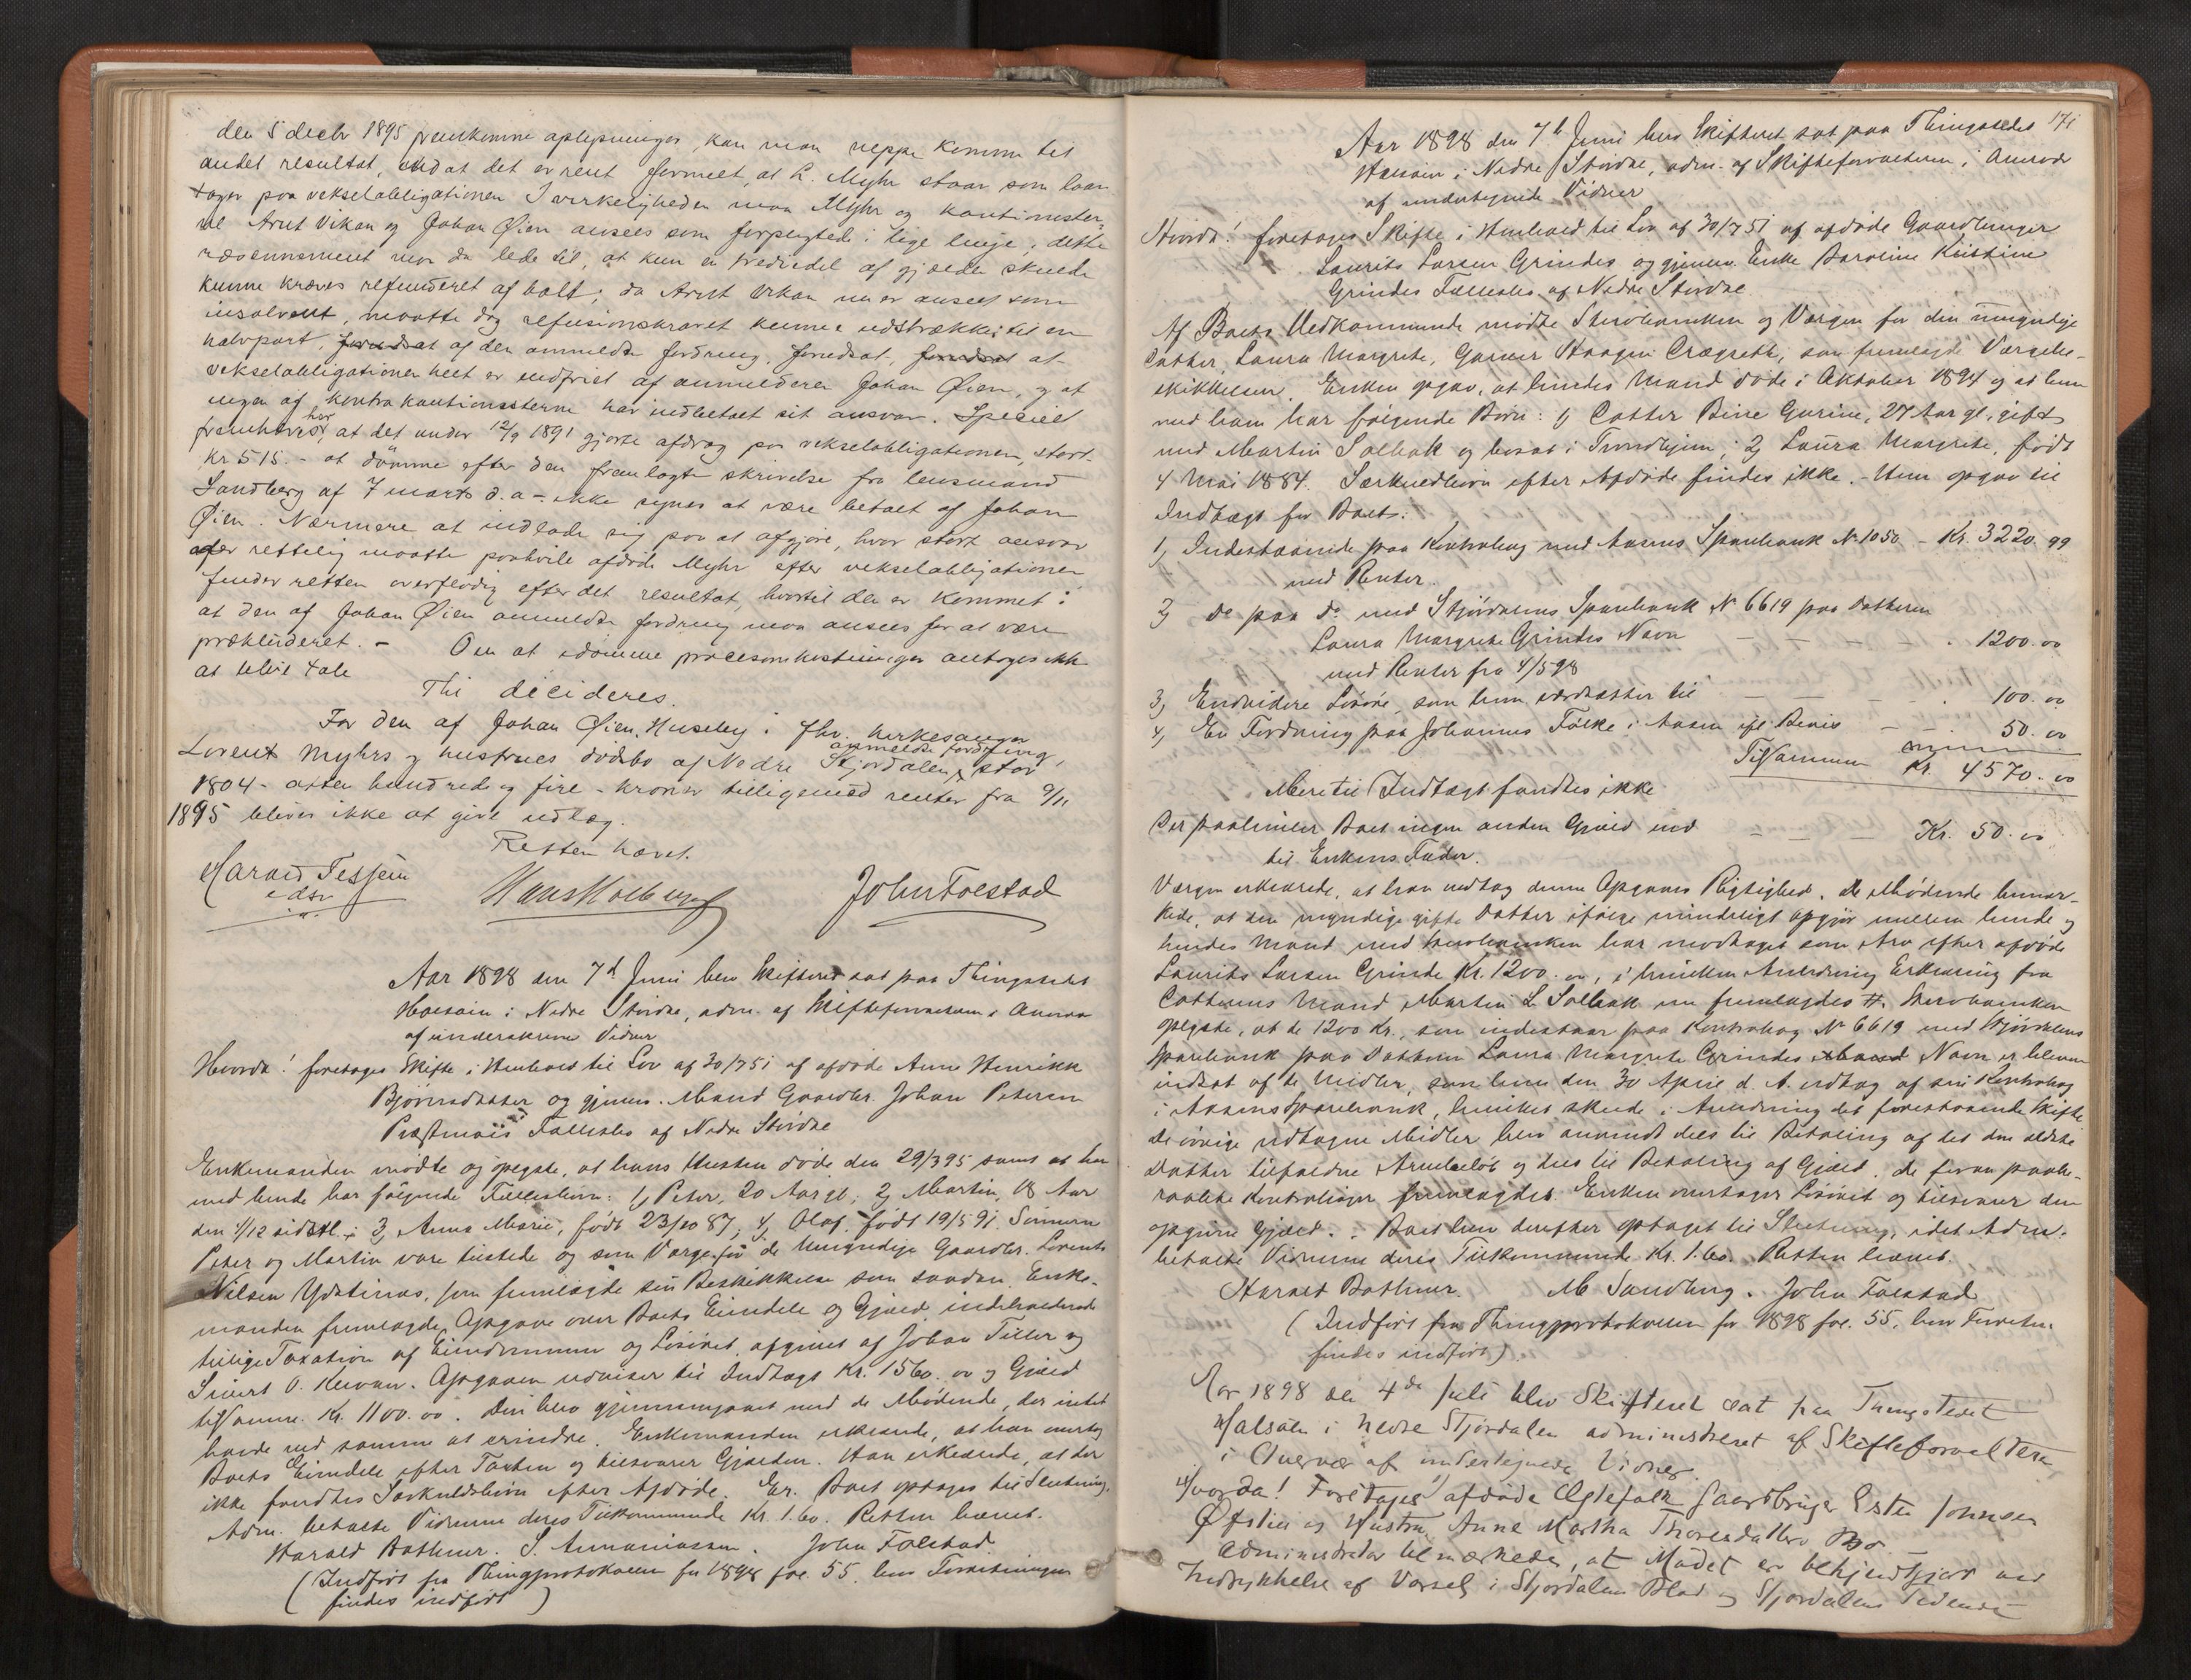 den 5 decbr 1895 fremkomne oplysninger, kan man neppe komme til
andet resultat, end at det er rent formelt, at L. Myhr staar som laan-
tager paa vekselobligationen I virkeligheden maa Myhr og kautionister-
ne Arnt Vikan og Johan Øien ansees som forpligtede i lige linje; dette
ræsonnement maa da lede til, at kun en trediedel af gjælden skulde
kunne kræves refunderet af boet; da Arnt Vikan nu er anseet som
insolvent, maatte dog refusionskravet kunne udstrækkes til en
halvpart, forudsat af den anmeldte fordring, forudsat, forudsat at
vekselobligationen helt er indfriet af anmelderen Johan Øien, og at
ingen af kontrakautionisterne har indbetalt sit ansvar. Specielt
fremhæves her, at det under 12/9 1891 gjorte afdrag paa vekselobligationen, stort
kr 515.- at dømme efter den fremlagte skrivelse fra lensmand
Sandberg af 7 marts d.a - ikke synes at være betalt af Johan
Øien. Nærmere at indlade sig paa at afgjøre, hvor stort ansvar
der rettelig maatte paahvile afdøde Myhr efter vekselobligationen
finder retten overflødig efter det resultat, hvortil den er kommet:
at den af Johan Øien anmeldte fordring maa ansees for at være
prækluderet. - Om at idømme procesomkostninger antages ikke
at blive tale
Thi decideres.
For den af Johan Øien, Huseby i fhv. kirkesanger
Lorent Myhrs og hustrues dødsbo af Nedre Stjørdalen anmeldte fordring, stor
1804 - atten hundrede og fire - kroner tilligemed renter fra 9/11
1895 bliver ikke at give udlæg.
Retten hævet.
Harald Tessem
edsv
Hans Holberg
John Folstad
Aar 1898 den 7d Juni blev Skifteret sat paa Thingstedet
Halsain i Nedre Stjrdal, adm. af Skifteforvalteren i Anvær
af underskrevne Vidner
Hvorda! foretages Skifte i Henhold til Lov af 30/7 51 af afdøde Anne Henrikke
Bjørnsdatter og gjenlev. Mand Gaardbr. Johan Petersen
Præstmoss Fællesbo af Nedre Stjrdal
Enkemanden mødte og opgav, at hans Hustru døde den 29/3 95 samt at han
med hende har følgende Fællesbørn: 1, Peter, 20 Aar gl; 2, Martin, 18 Aar
den 4/12 sidstl.; 3, Anna Marie, født 23/10 87; 4, Olaf, født 19/5 91. Sønnerne
Peter og Martin vare tilstede og som Værge for de Umyndige Gaardbr. Lorents
Nilsen Ydstinas, som fremlagde sin Beskikkelse som saadan. Enke-
manden fremlagde Opgave over Boets Eiendele og Gjæld indeholdende
tillige Taxation af Eiendommen og Løsøret, afgivet af Johan Tiller og
Sivert O. Kirvan. Opgaven udviser til Indtægt Kr. 1560.00 og Gjæld
tilsamm. Kr. 1100.00. Den blev gjennemgaaet med de Mødende, der intet
havde ved samme at erindre. Enkemanden erklærede, at han overtog
Boets Eiendele efter Taxten og tilsvarer Gjælden. Han erklærede, at der
ikke fandtes Særkuldsbørn efter Afdøde. Er. Boet optages til Slutning.
Adm. betalte Vidnerne deres Tilkommende Kr. 1.60. Retten hævet.
Harald Bothner. S. Annaniassen. John Folstad
(Indført fra Thingprotokollen for 1898 fol. 55, hvor Forretningen
findes indført)
171
Aar 1898 den 7d Juni blev Skifteret sat paa Thingstedet
Halsain i Nedre Stjrdal, adm. af Skifteforvalteren i Anvær
af undertegnede Vidner
Hvorda! foretages Skifte i Henhold til Lov af 30/7 51 af afdøde Gaardbruger
Laurits Larsen Grindes og gjenlev. Enke Karoline Kristine
Grindes Fællesbo af Nedre Stjrdal
Af Boets Vedkommende mødte Skrvoenken og Værgen for den umyndige
Datter, Laura Margrete, Garver Haagen Crægsett, som fremlagde Værgebe-
skikkelsen. Enken opgav, at hendes Mand døde i Oktober 1894 og at hun
med ham har følgende Børn: 1, Datter Bine Gurine, 27 Aar gl., gift
med Martin Solbak og bosat i Trondhjem; 2, Laura Margrete, født
4 Mai 1884. Særkuldbørn efter Afdøde findes ikke. - Hun opgav til
Indtægt for Boet:
1, Indestaaende paa Kontrabog med Aasens Sparebank No 1050 - Kr. 3220.99
med Renter.
2, Do paa do med Stjørdalens Sparebank No 6619 paa Datteren
Laura Margrete Grindes Navn - - - . 1200.00
med Renter fra 4/5 98
3, Endvidere Løsøre, som hun værdsætter til - - . 100.00
4, En Fordring paa Johannes Følke i Aasen efl. Bevis - - . 50.00
Tilsammen Kr. 4570.00
Mere til Indtægt fandtes ikke
Der paahviler Boet ingen anden Gjæld end - - - Kr. 50.00
til Enkens Fader.
Værgen erklærede, at han vedtog denne Opgaves Rigtighed. De Mødende bemær-
kede, at den myndige gifte Datter ifølge mindeligt Opgjør mellem hende og
hendes Mand med Skrvoenken har modtaget som Arv efter afdøde
Laurits Larsen Grinde Kr. 1200.00, i hvilken Anledning Erklæring fra
Datterens Mand Martin L. Solbak nu fremlagdes #. Skrvoenken
oplyste, at de 1200 Kr., som indestaar paa Kontrabog No 6619 med Stjørdalens
Sparebank paa Datteren Laura Margrete Grindes Mand Navn er bleven
indsat af de Midler, som hun den 30 April d. A. udtog af sin Kontrabog
i Aasens Sparebank, hvilket skede i Anledning det forestaaende Skifte
De øvrige udtagne Midler blev anvendt dels til Betaling af det den ældste
Datter tilfaldne Arvebeløb og dels til Betaling af Gjæld. De foran paabe-
raabte Kontrabøger fremlagdes. Enken overtager Løsøret og tilsvarer den
opgivne Gjæld. : Boet blev derefter optaget til Slutning, idet Adm.
betalte Vidnerne deres Tilkommende Kr. 1.60. Retten hævet.
Harald Bothner. M Sandberg. John Folstad
(Indført fra Thingprotokollen for 1898 fol. 55, hvor Forretn.
findes indført)
Aar 1898 den 4de Juli blev Skifteret sat paa Thingstedet
Halsøen i nedre Stjørdalen administreret af Skifteforvalteren
i Overvær af undertegnede Vidner.
Hvorda! Foretages afdøde Ægtefolk Gaardbruger Esten Johnsen
Øfstie og Hustru Anne Martha Thoresdatters Bo
Administrator bemærkede, at Mødet er bekjendtgjort ved
Indrykkelse af Varsel i Stjørdalens Blad og Stjørdalens Tidende